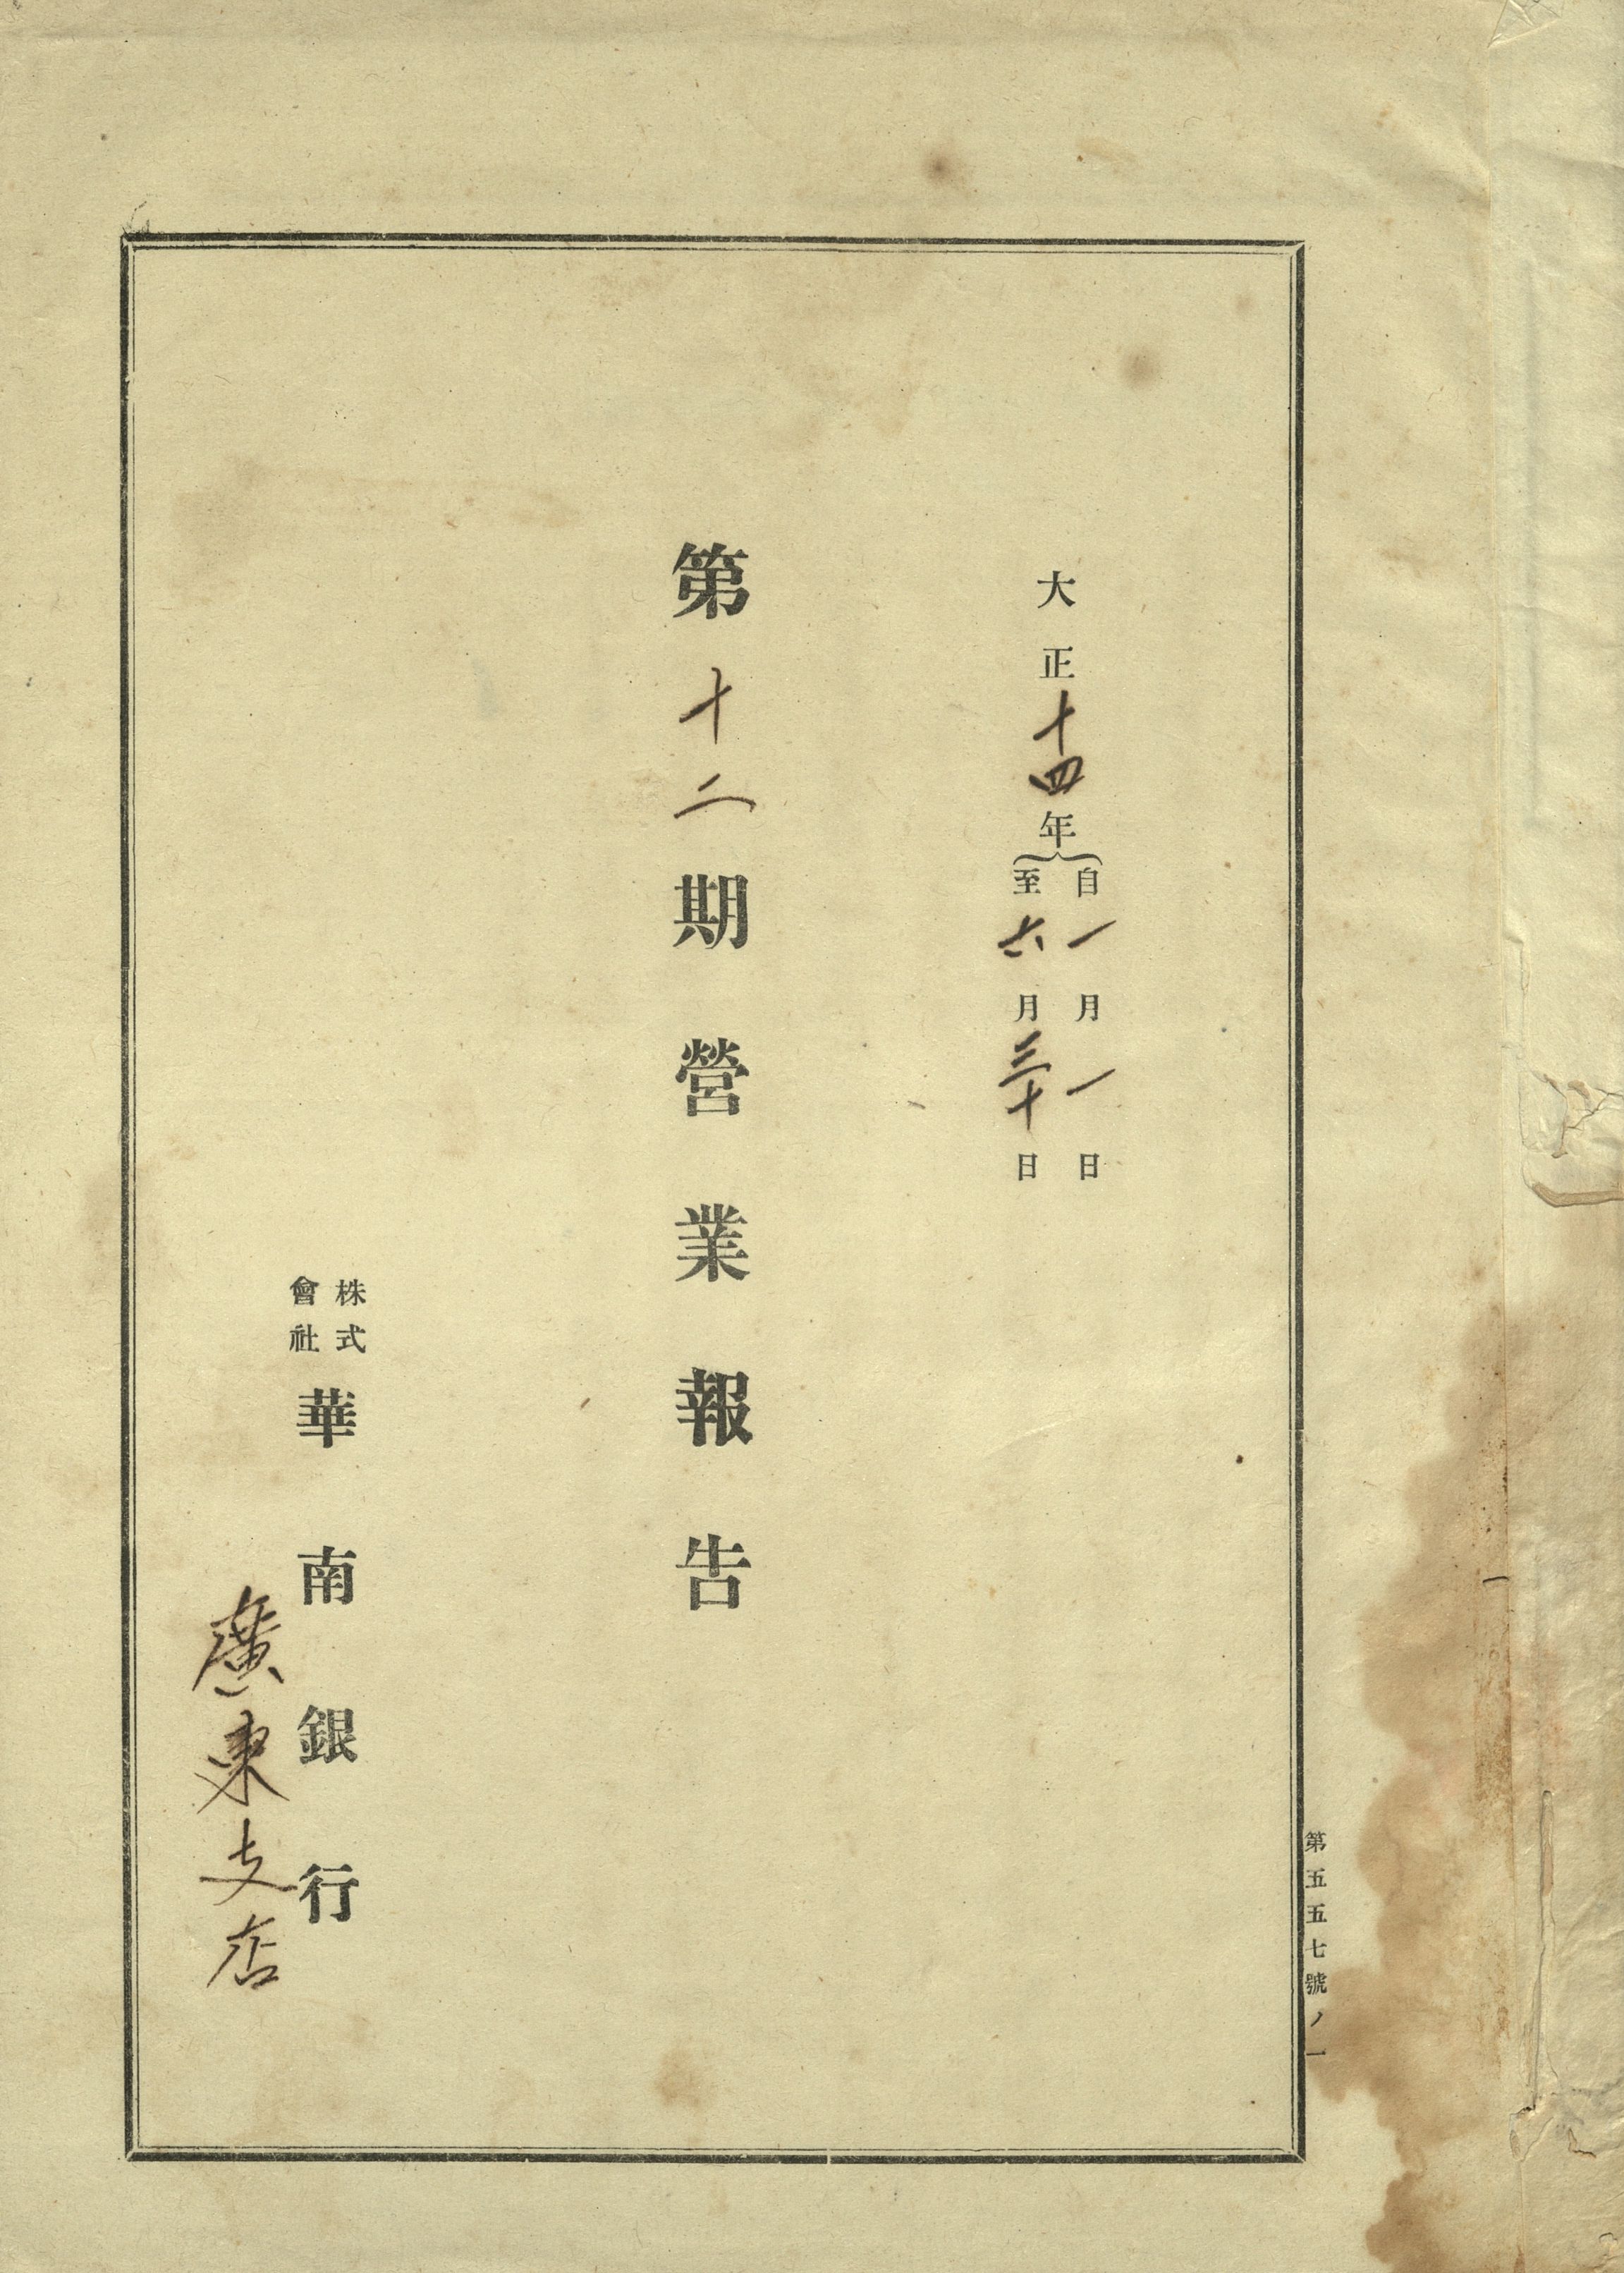 第五五七號ノ一
大正十四年
自一月一日
至六月三十日
第十二期營業報告
株式
會社
華南銀行
廣東支店